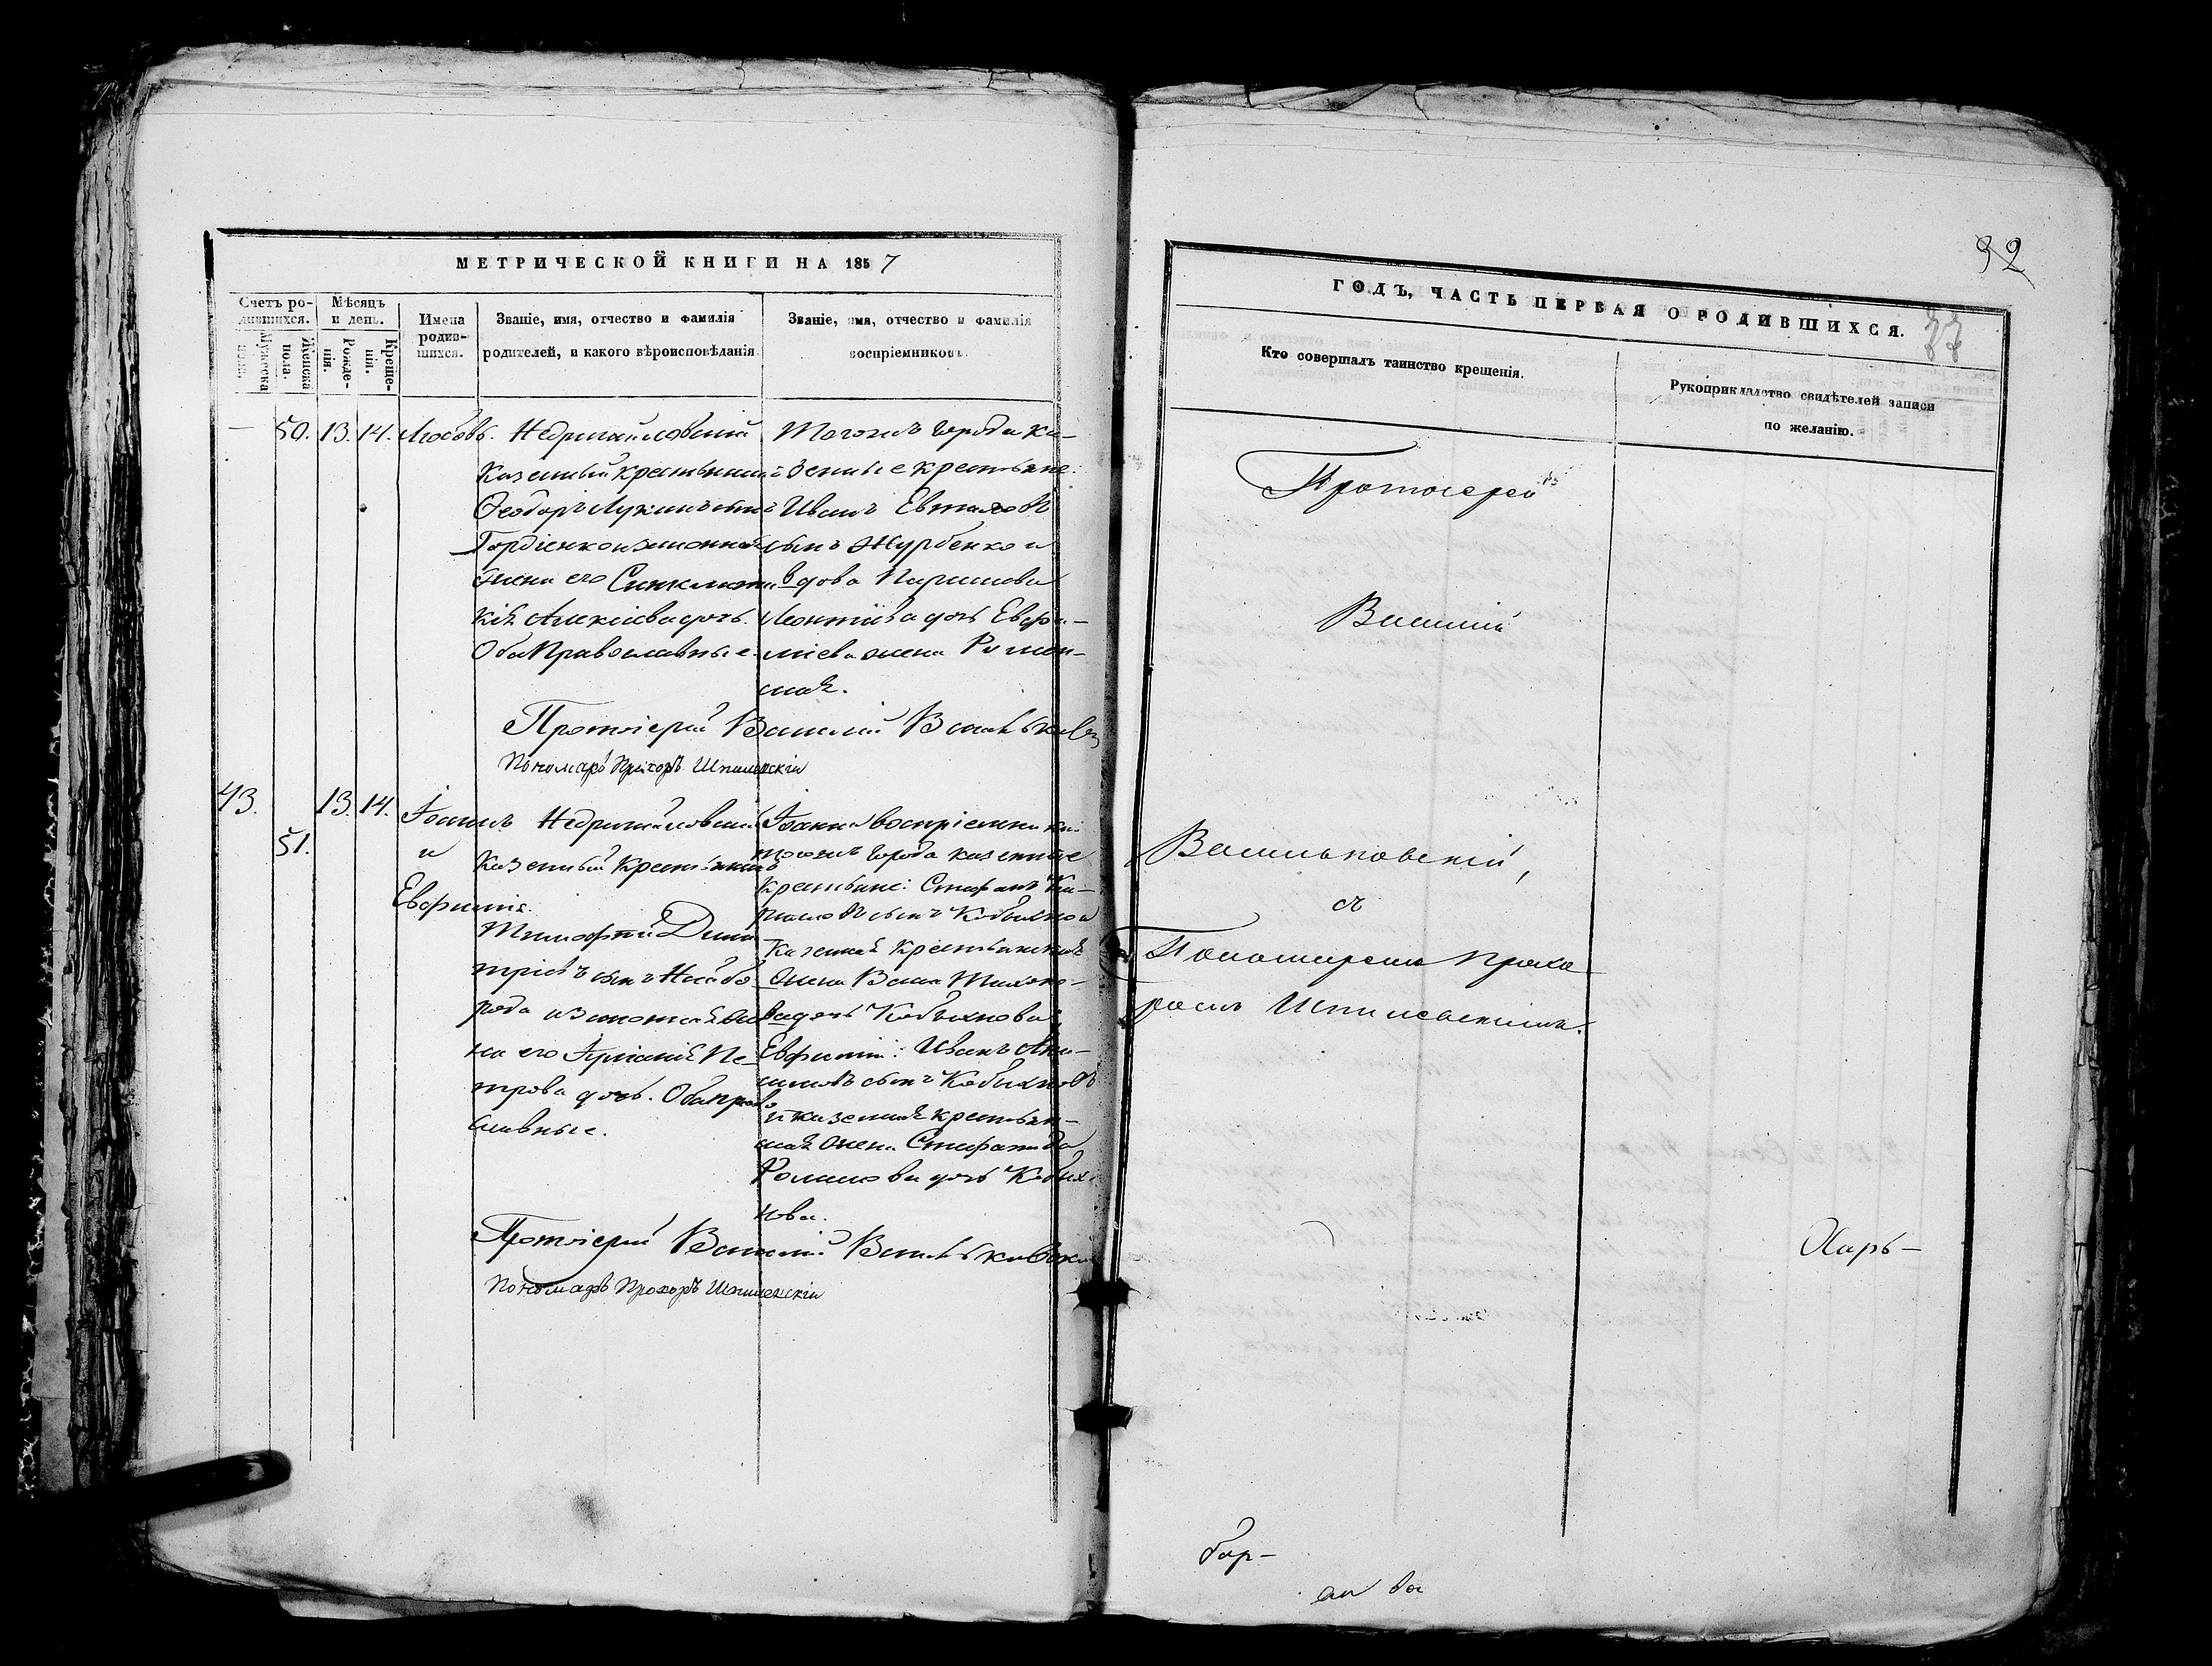 МЕТРИЧЕСКОЙ КНИГИ НА 1857
Счетъ родившихся.
Мужеска пола.
Женска пола.
Мѣсяцъ и день.
Рожденія.
Крещенія.
Имена родившихся.
Званіе, имя, отчество и фамилія
родителей, и какого вѣроисповѣданія.
Званіе, имя, отчество и фамилія
воспріемниковъ.
— 50. 13. 14. Любовь.
Недригайловскій
Казенный крестьянинъ
Ѳеодоръ Лукинъ сынъ
Гордіенко и законная
жена его Синклити
кія Алексіева дочь.
Оба Православные.
Тогожъ города Ка-
зенные крестьяне:
Иванъ Евтихіовъ
сынъ Журбенко и
вдова
Леонтіева дочь Евфи-
міева жена
ная.
Протоіерей Василій Васильковск
Пономарь Прохоръ Шпилевскій
43. 13. 14. Іоаннъ
51. и
Евфимія.
Недригайловскій
Казенный Крестьянинъ
Тимофей Дими
тріевъ сынъ
рода и законная же
на его Ирина Пе-
трова дочь. Оба право
славные.
Іоанна воспріемники:
тогожъ города казенные
Крестьяне: Стефанъ
сынъ Кобыхно и
Казенная Крестьянская
жена Васса Тихоно-
ва дочь Кобыхнова,
Евфиміи: Иванъ Аки-
мовъ сынъ Кобыхновъ
и казенная крестьян-
ская жена Стефанида
Романова дочь Кобых-
нова.
Протоіерей Василій Васильковски
Пономарь Прохоръ Шпилевскій
92
77
ГОДЪ, ЧАСТЬ ПЕРВАЯ О РОДИВШИХСЯ.
Кто совершалъ таинство крещенія.
Рукоприкладство свидѣтелей записи
по желанію.
Протоіерей
Василій
Васильковскій,
съ
Пономаремъ Прохо-
ромъ Шпилевскимъ.
Харь-